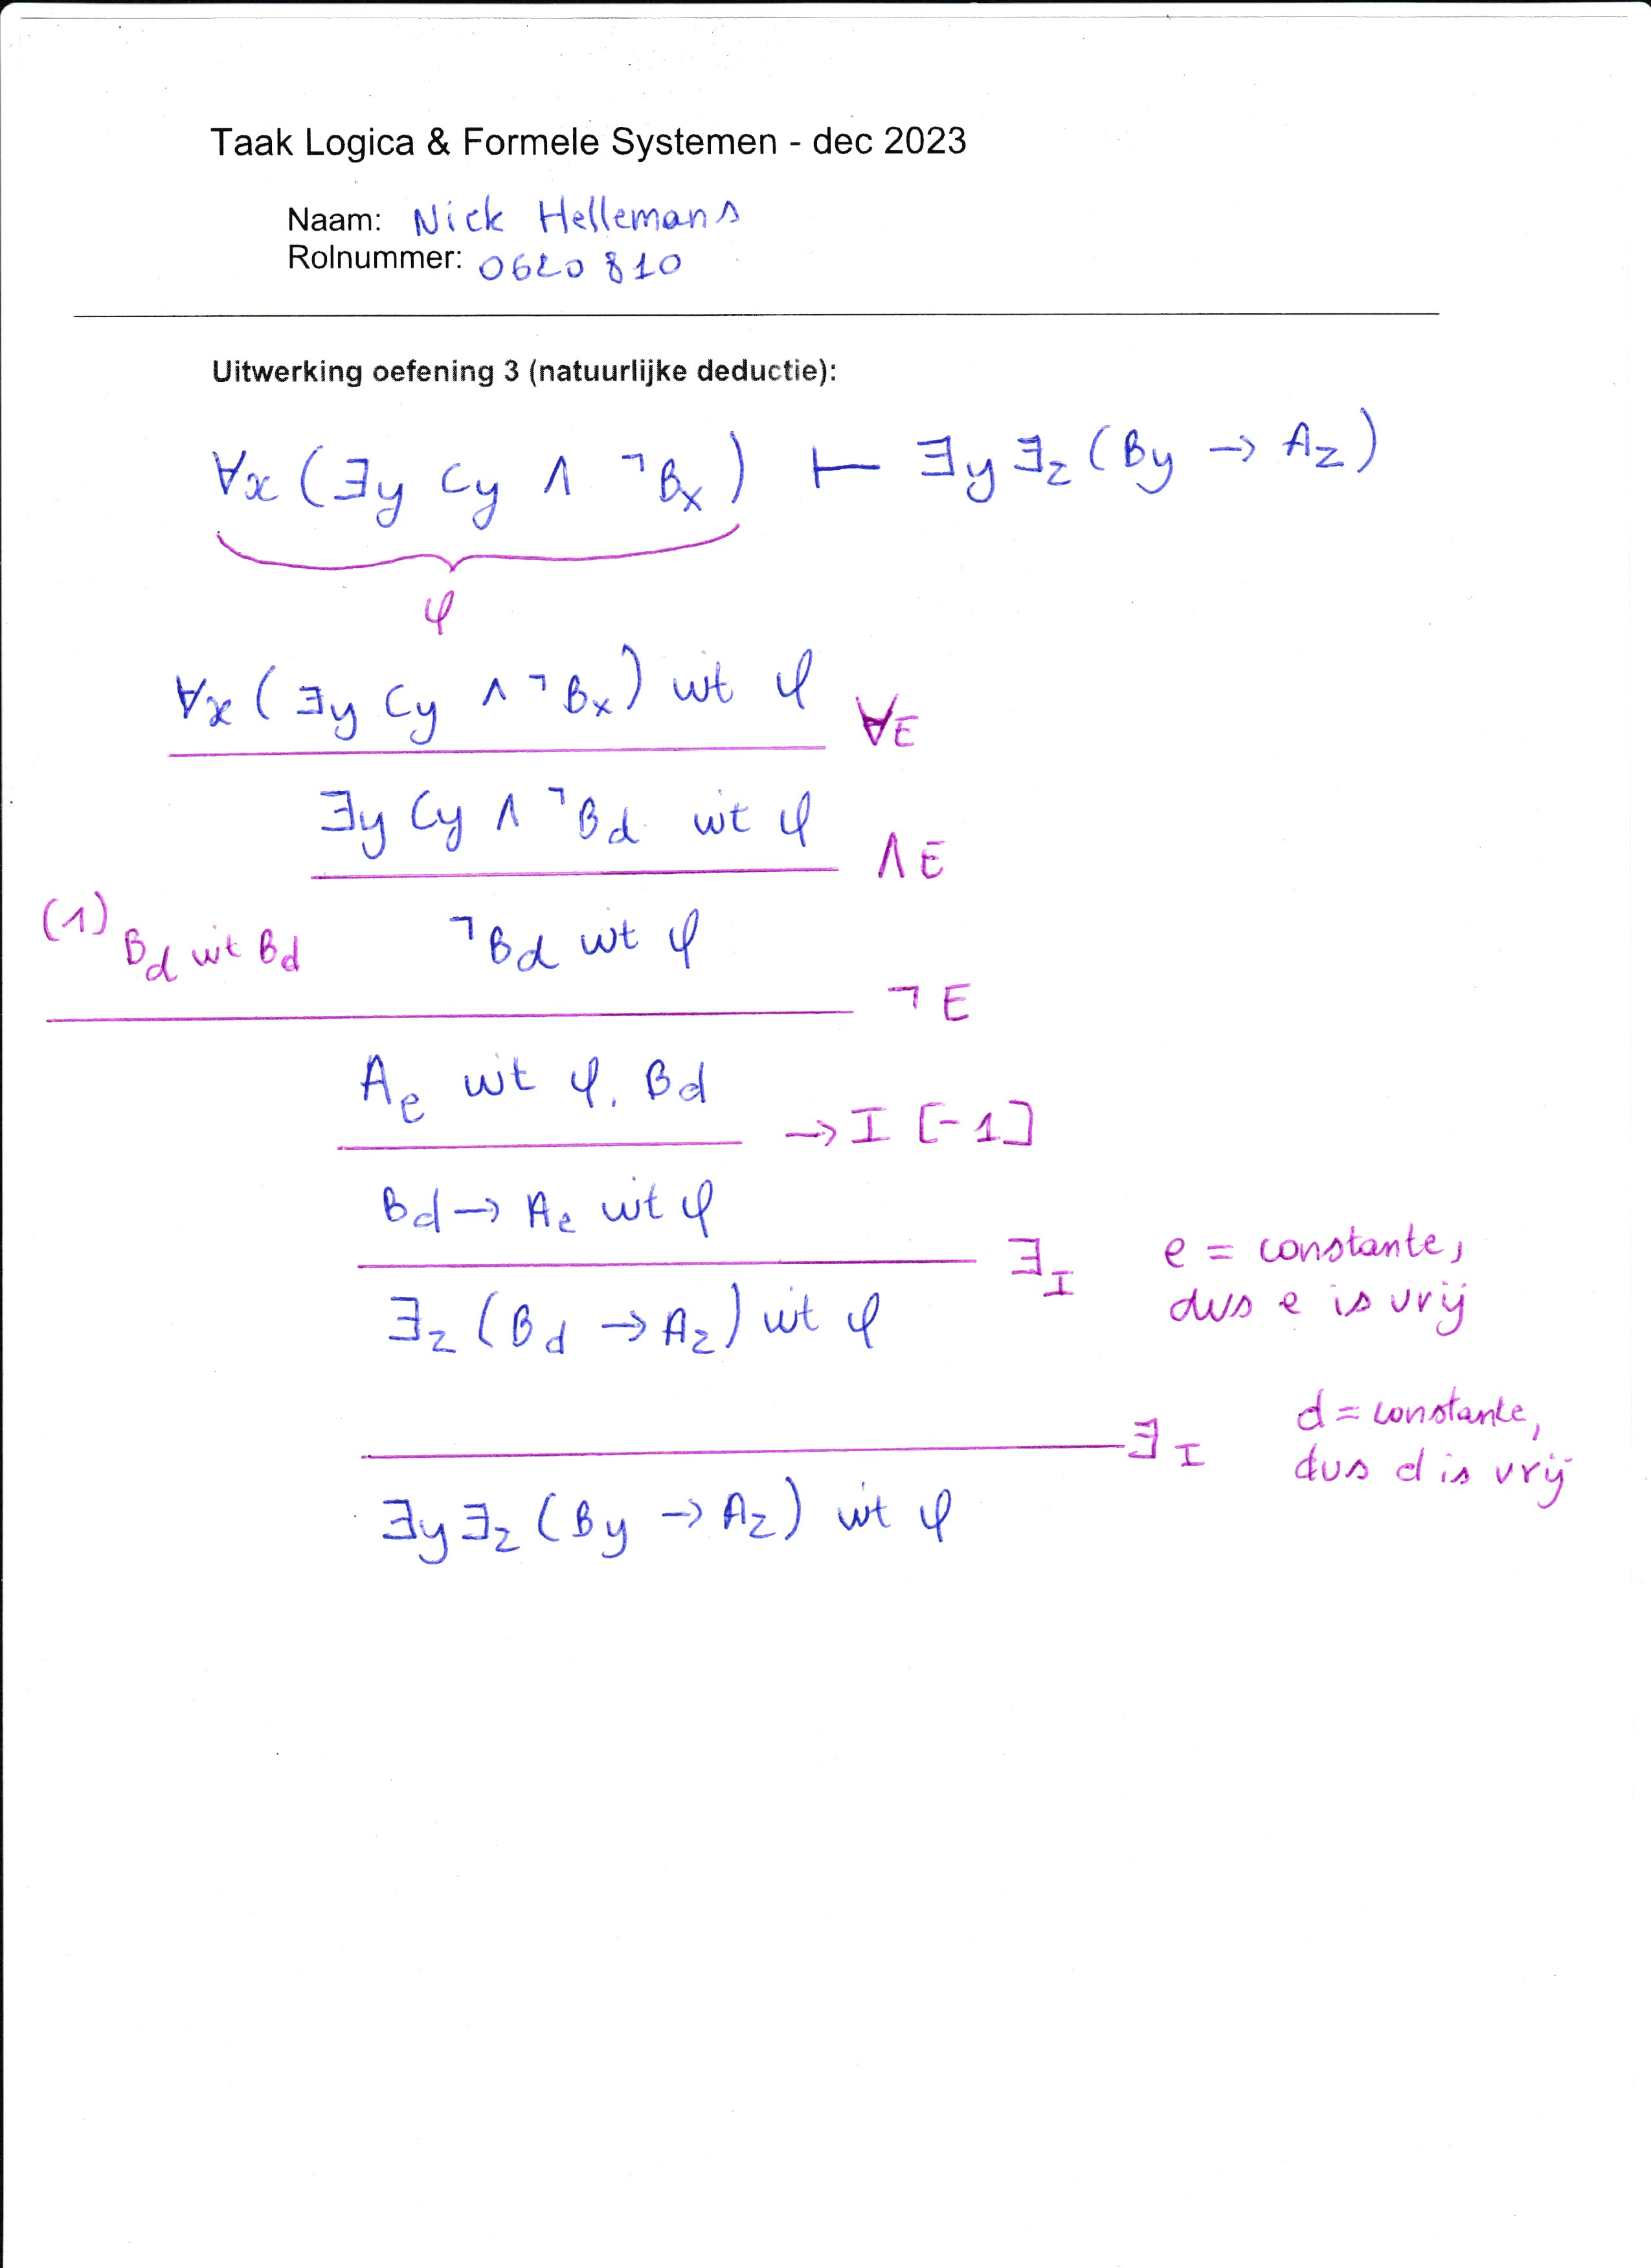 Taak Logica & Formele Systemen - dec 2023
Naam: Nick Hellemans
Rolnummer: 0620810
Uitwerking oefening 3 (natuurlijke deductie):
∀x (∃y Cy ∧ ¬Bx) ⊢ ∃y ∃z (By → Az)
φ
∀x (∃y Cy ∧ ¬Bx) uit φ ∀E
∃y Cy ∧ ¬Bd uit φ ∧E
(1) Bd uit Bd ¬Bd uit φ
¬E
Ae uit φ, Bd
→I [-1]
Bd → Ae uit φ
∃I e = constante,
dus e is vrij
∃z (Bd → Az) uit φ
∃I d = constante,
dus d is vrij
∃y ∃z (By → Az) uit φ